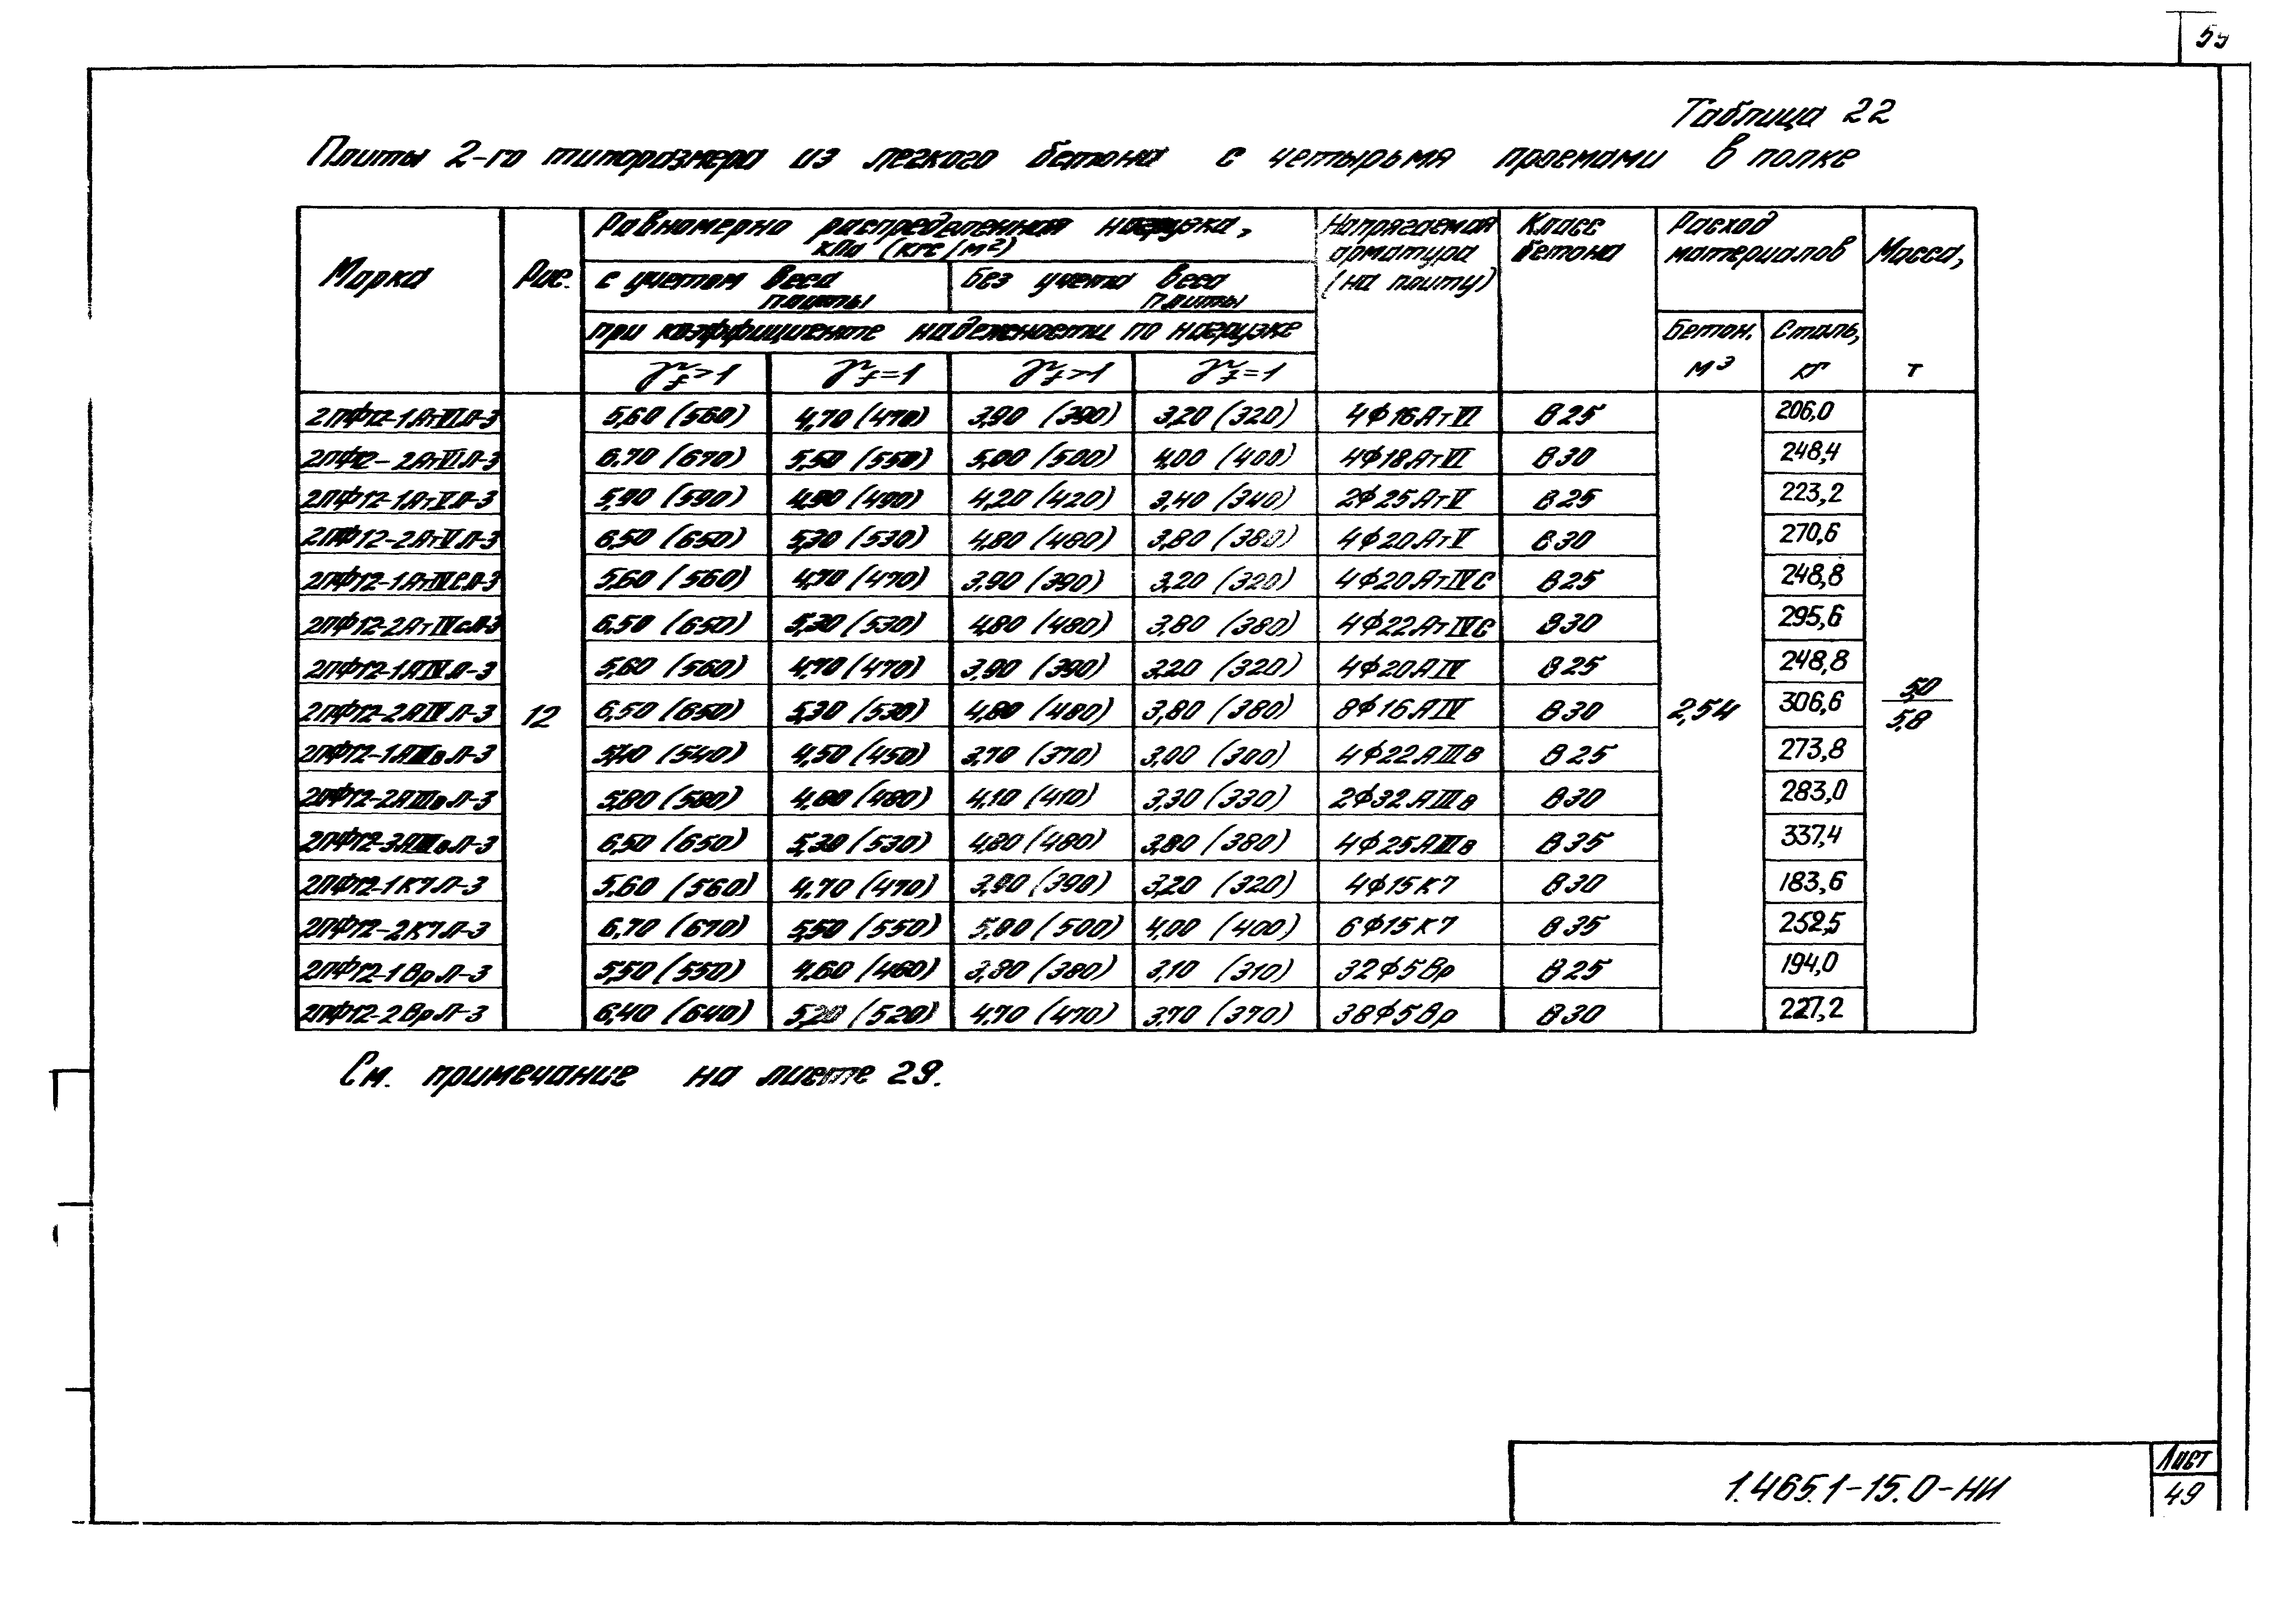 Таблица 22
Плиты 2-го типоразмера из легкого бетона с четырьмя проемами в полке
Марка
Рис.
Равномерно распределенная нагрузка,
кПа (кгс/м²)
с учетом веса
плиты
без учета веса
плиты
при коэффициенте надежности по нагрузке
γf>1 γf=1 γf>1 γf=1
Напрягаемая
арматура
(на плиту)
Класс
бетона
Расход
материалов
Бетон,
м³
Сталь,
кг
Масса,
т
2ПФ12-1АтVIЛ-3 5,60 (560) 4,70 (470) 3,90 (390) 3,20 (320) 4Ф16АтVI В25 206,0
2ПФ12-2АтVIЛ-3 6,70 (670) 5,50 (550) 5,00 (500) 4,00 (400) 4Ф18АтVI В30 248,4
2ПФ12-1АтVЛ-3 5,90 (590) 4,90 (490) 4,20 (420) 3,40 (340) 2Ф25АтV В25 223,2
2ПФ12-2АтVЛ-3 6,50 (650) 5,30 (530) 4,80 (480) 3,80 (380) 4Ф20АтV В30 270,6
2ПФ12-1АтIVСЛ-3 5,60 (560) 4,70 (470) 3,90 (390) 3,20 (320) 4Ф20АтIVС В25 248,8
2ПФ12-2АтIVСЛ-3 6,50 (650) 5,30 (530) 4,80 (480) 3,80 (380) 4Ф22АтIVС В30 295,6
2ПФ12-1АIVЛ-3 5,60 (560) 4,70 (470) 3,90 (390) 3,20 (320) 4Ф20АIV В25 248,8
2ПФ12-2АIVЛ-3 12 6,50 (650) 5,30 (530) 4,80 (480) 3,80 (380) 8Ф16АIV В30 2,54 306,6 5,0/5,8
2ПФ12-1АIIIвЛ-3 5,40 (540) 4,50 (450) 3,70 (370) 3,00 (300) 4Ф22АIIIв В25 273,8
2ПФ12-2АIIIвЛ-3 5,80 (580) 4,80 (480) 4,10 (410) 3,30 (330) 2Ф32АIIIв В30 283,0
2ПФ12-3АIIIвЛ-3 6,50 (650) 5,30 (530) 4,80 (480) 3,80 (380) 4Ф25АIIIв В35 337,4
2ПФ12-1К7Л-3 5,60 (560) 4,70 (470) 3,90 (390) 3,20 (320) 4Ф15К7 В30 183,6
2ПФ12-2К7Л-3 6,70 (670) 5,50 (550) 5,00 (500) 4,00 (400) 6Ф15К7 В35 252,5
2ПФ12-1ВрЛ-3 5,50 (550) 4,60 (460) 3,80 (380) 3,10 (310) 32Ф5Вр В25 194,0
2ПФ12-2ВрЛ-3 6,40 (640) 5,20 (520) 4,70 (470) 3,70 (370) 38Ф5Вр В30 227,2
См. примечание на листе 29.
1.465.1-15.0-НИ
Лист
49